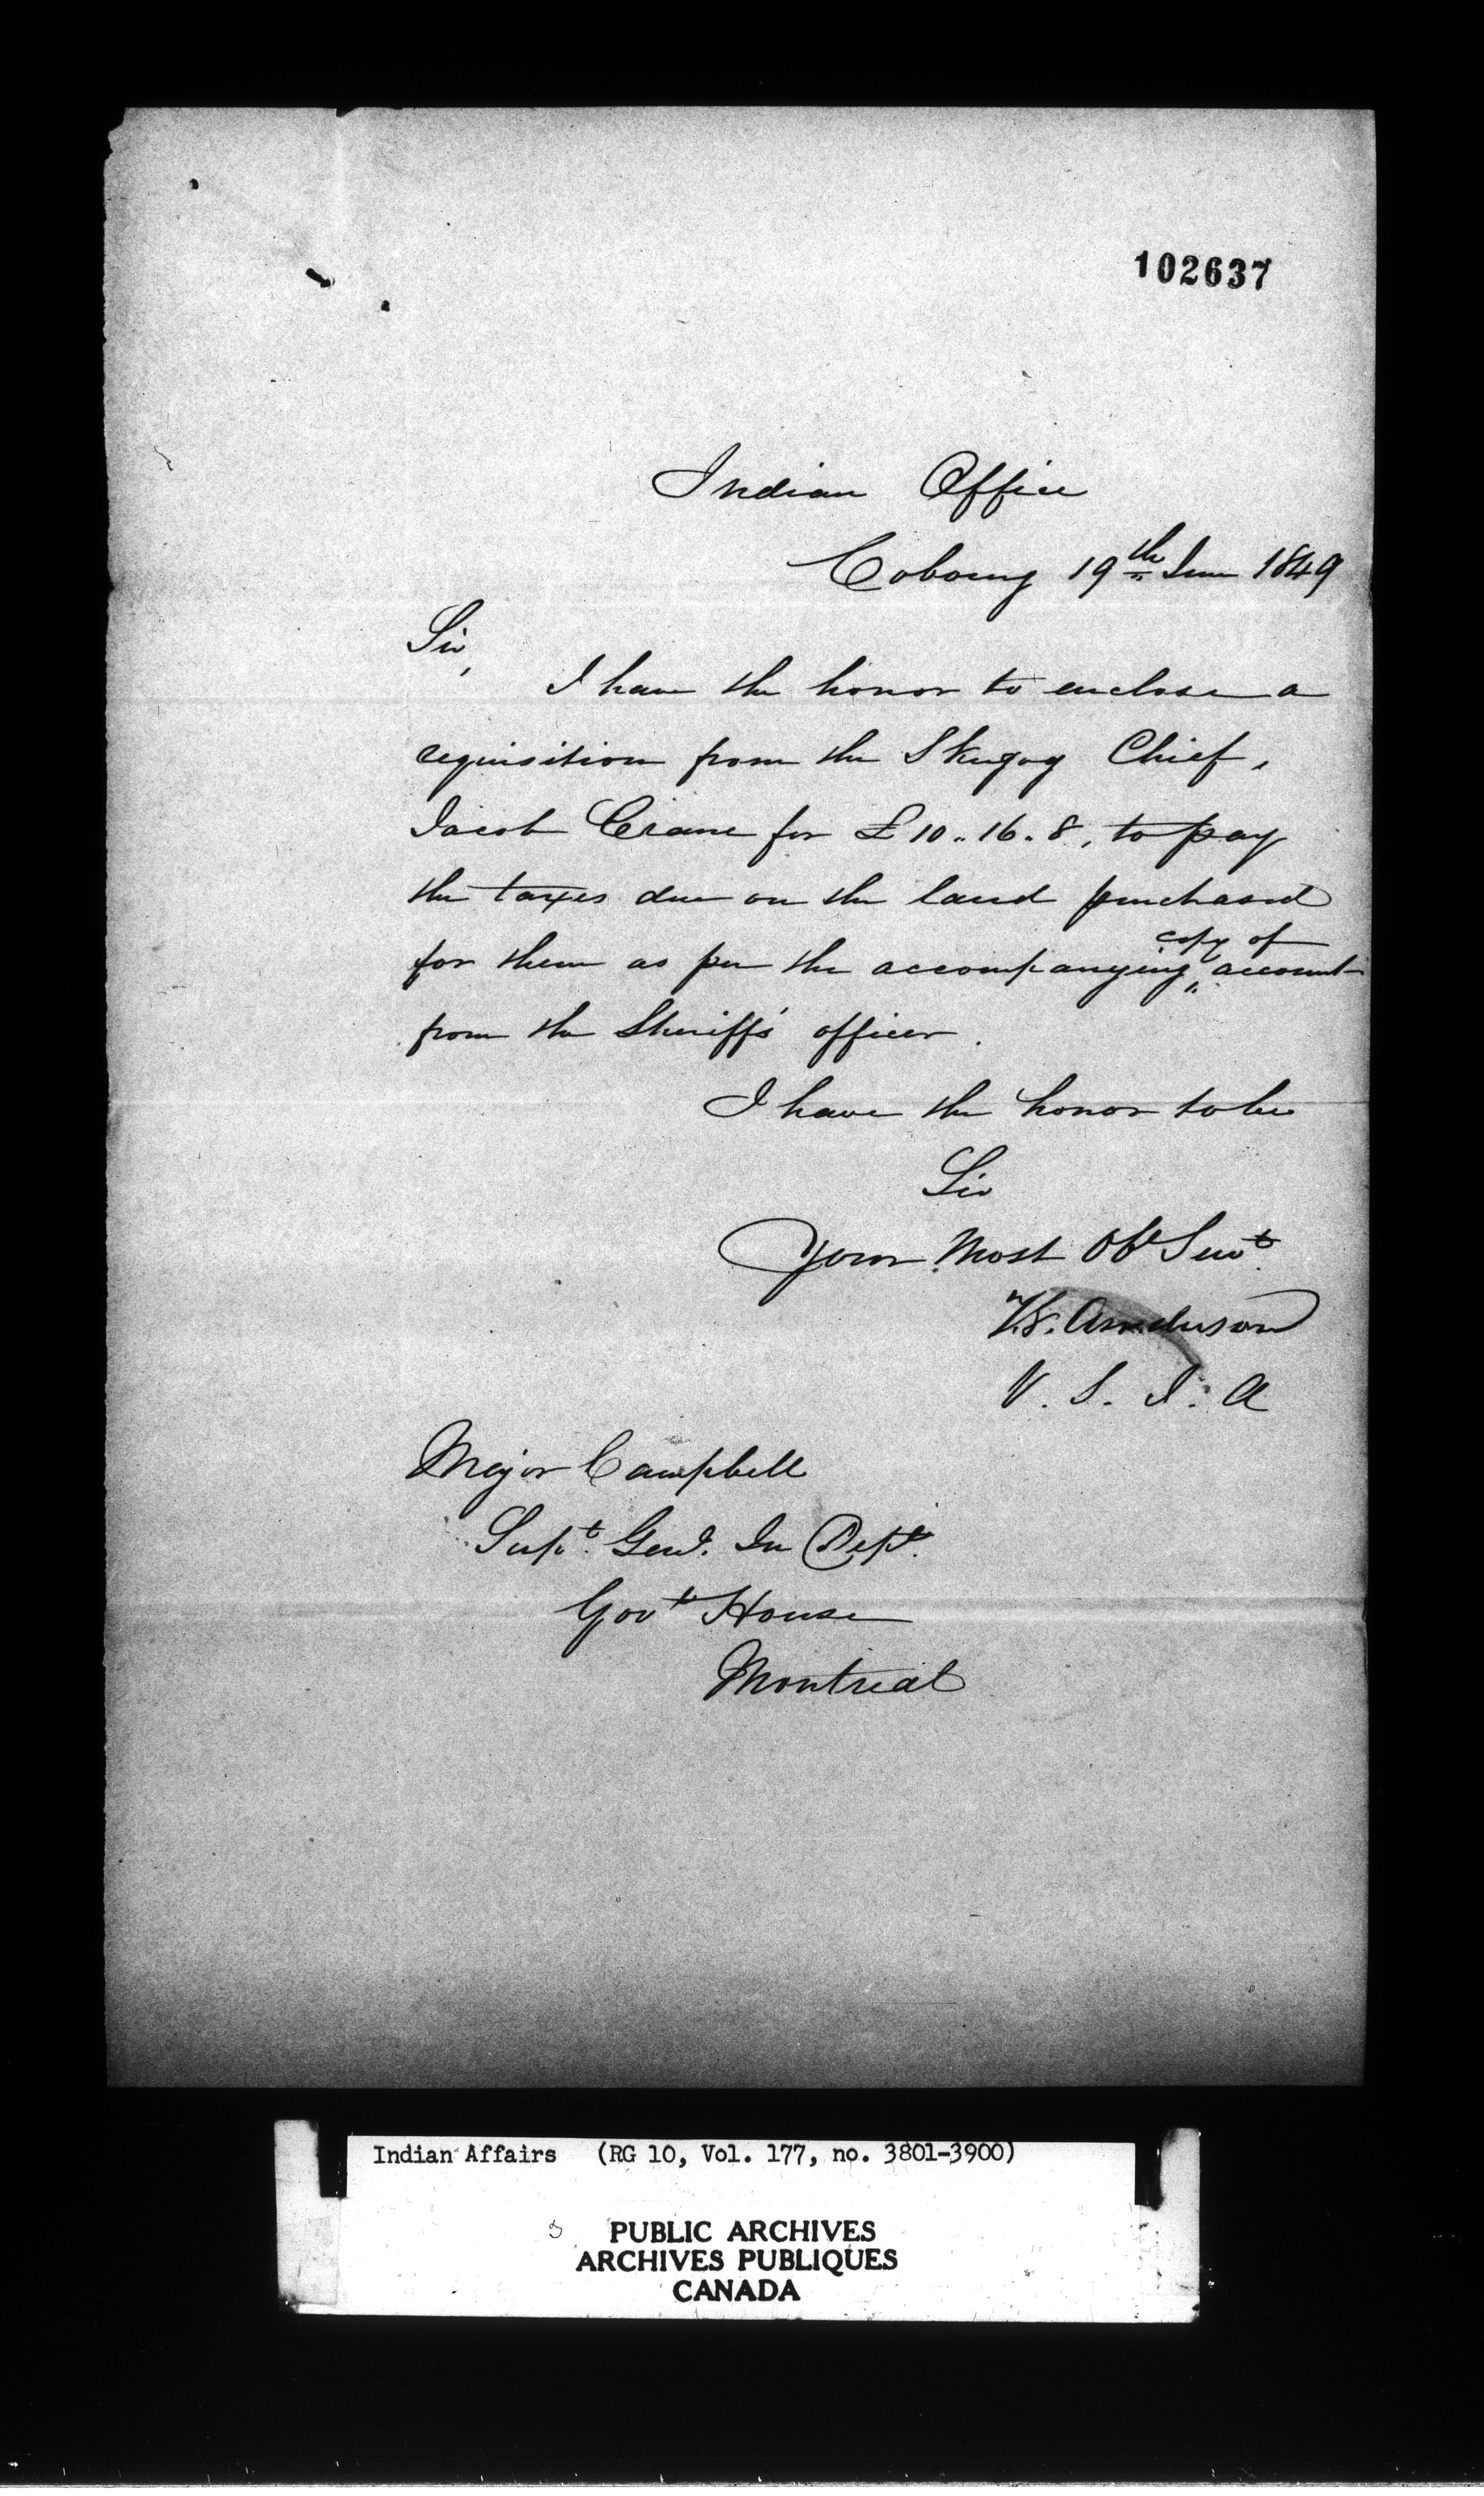 102637
Indian Office
Cobourg 19th June 1849
Sir,
I have the honor to enclose a
requisition from the Skugog Chief,
Jacob Crane for £10..16..8, to pay
the taxes due on the land purchased
for them as per the accompanying copy of account
from the Sheriff's officer.
I have the honor to be
Sir
Your Most Obt Servt
Anderson
V. S. I. A
Major Campbell
Supt. Genl. In Dept.
Govt House
Montreal
Indian Affairs (RG 10, Vol. 177, no. 3801-3900)
PUBLIC ARCHIVES
ARCHIVES PUBLIQUES
CANADA